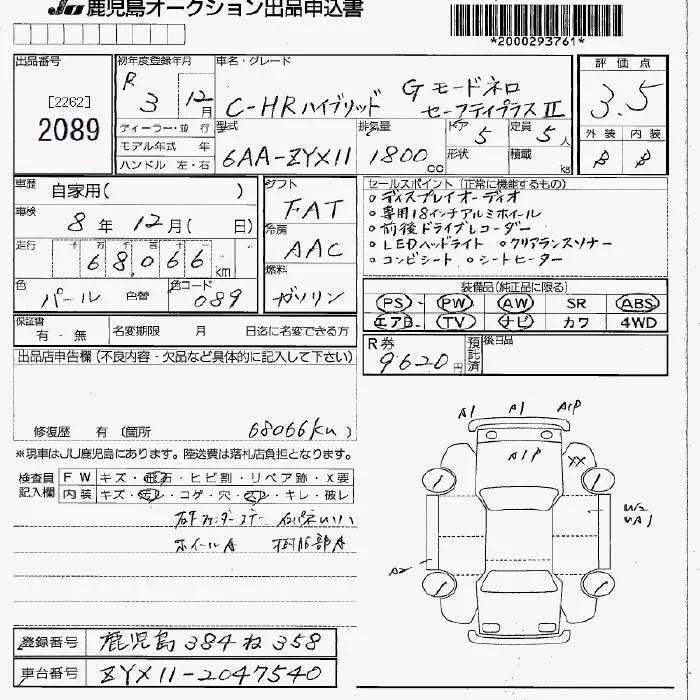 JU 鹿児島オークション出品申込書
*2000293761*
出品番号
[2262]
2089
初年度登録年月
R 3 12月
車名・グレード
C-HRハイブリッド Gモードネロ
セーフティプラスⅡ
評価点
3.5
外装 内装
B B
ディーラー・並 行
モデル年式 年
ハンドル 左・右
型式
6AA-ZYX11
排気量
1800cc
ドア 5
形状
定員 5人
積載 kg
車歴
自家用( )
車検
8年 12月( 日)
走行
十万千百十
68,066km
色
パール
色替
色コード
089
シフト
FAT
冷房
AAC
燃料
ガソリン
セールスポイント(正常に機能するもの)
○ディスプレイオーディオ
○専用18インチアルミホイール
○前後ドライブレコーダー
○LEDヘッドライト ○クリアランスソナー
○コンビシート ○シートヒーター
装備品(純正品に限る)
PS PW AW SR ABS
エアB TV ナビ カワ 4WD
保証書
有・無
名変期限 月 日迄に名変できる方
R券
9620円
預託済
後日品
出品店申告欄(不良内容・欠品など具体的に記入して下さい)
修復歴 有 (箇所 68066km)
※現車はJU鹿児島にあります。陸送費は落札店負担となります。
検査員
記入欄
FW キズ・飛石・ヒビ割・リペア跡・X要
内装 キズ・ ・コゲ・穴・ ・キレ・破レ
ホイールA
A1 A1 A1P
A1P
XX
W2
A2
登録番号 鹿児島 384 ね 358
車台番号 ZYX11-2047540